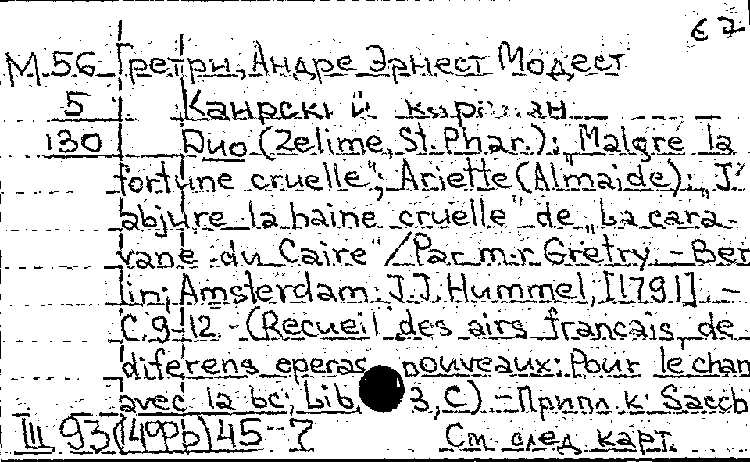 67
М 56 Гретри, Андре Эрнест Модест
5 Каирский караван
130 Duo (Zelime, St. Phar.): "Malgre la
fortune cruelle"; Ariette (Almaide): "J'
abjure la haine cruelle" de "La cara-
vane du Caire" / Par m-r Gretry. - Ber-
lin; Amsterdam: J.J. Hummel, [1791]. -
C. 9-12 - (Recueil des airs francais de
diferens operas nouveaux: Pour le chan
avec la bc; Lib. 3, C) - Припл. к: Sacch
III 93(14ppb)45-7 См. след. карт.